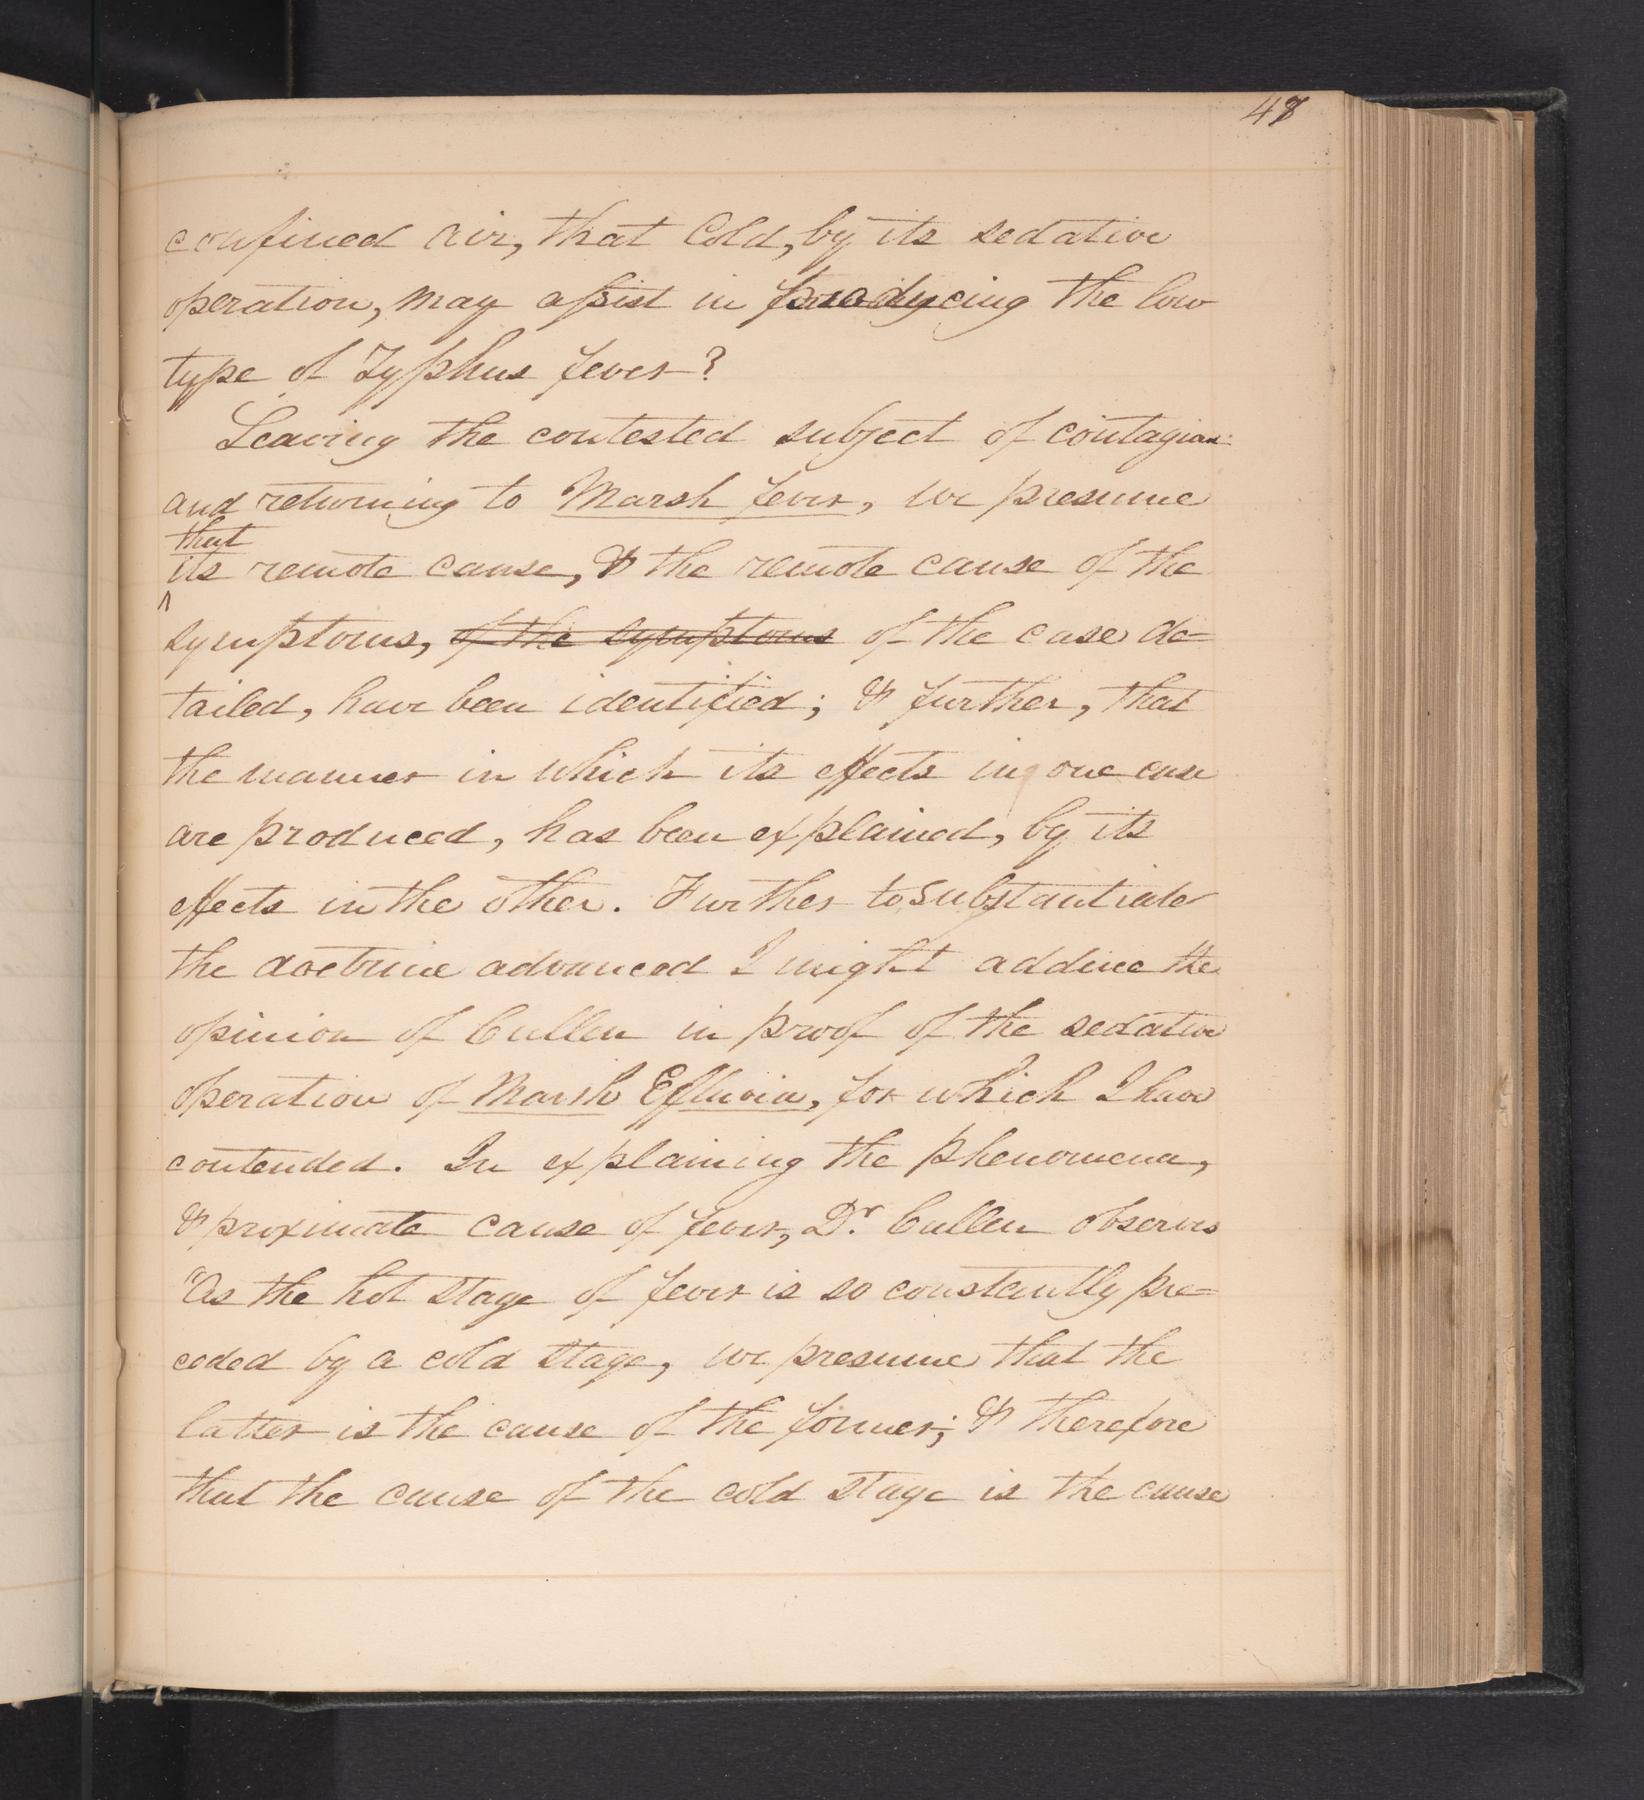 47
confined air, that Cold, by its sedative
operation, may assist in producing the low
type of Typhus fever?
Leaving the contested subject of contagion
and returning to Marsh fever, we presume
that
its remote cause, & the remote cause of the
symptoms, of the symptoms of the case de=
tailed, have been identified; & further, that
the manner in which its effects in one case
are produced, has been explained, by its
effects in the other. Further to substantiate
the doctrine advanced I might adduce the
opinion of Cullen in proof of the sedative
operation of Marsh Effluvia, for which I have
contended. In explaining the phenomena,
& proximate cause of fever, Dr. Cullen observes
"As the hot stage of fever is so constantly pre=
ceded by a cold stage, we presume that the
latter is the cause of the former; & therefore
that the cause of the cold stage is the cause